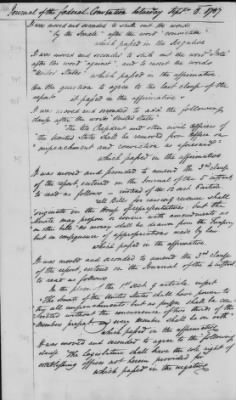 Journal of the federal Convention Saturday Sept. 8. 1787
It was moved and seconded to strike out the words
"by the Senate" after the word "conviction"
which passed in the negative
It was moved and seconded to strike out the word "State"
after the word "against", and to insert the words
"United States" which passed in the affirmative
On the question to agree to the last clause of the
report it passed in the affirmative
It was moved and seconded to add the following
clause after the words "United States"
"The Vice President and other civil Officers of
the United States shall be removed from Office on
impeachment and conviction as aforesaid"
which passed in the affirmative
It was moved and seconded to amend the 3rd clause
of the report, entered on the Journal of the 5 instant
to read as follows instead of the 12 sect. 6 article
"All Bills for raising revenue shall
originate in the House of Representatives; but the
Senate may propose or concur with amendments as
on other bills. No money shall be drawn from the Treasury
but in consequence of appropriations made by law"
which passed in the affirmative
It was moved and seconded to amend the 3rd clause
of the report, entered on the Journal of the instant
to read as follows
In the place of the 1st sect. 9 article insert
"The Senate of the United States shall have power to
try all impeachments; but no person shall be con-
victed without the concurrence of two thirds of the
Members present; and every member shall be on oath"
which passed in the affirmative
It was moved and seconded to agree to the following
clause "The Legislature shall have the sole right of
establishing offices not herein provided for"
which passed in the negative